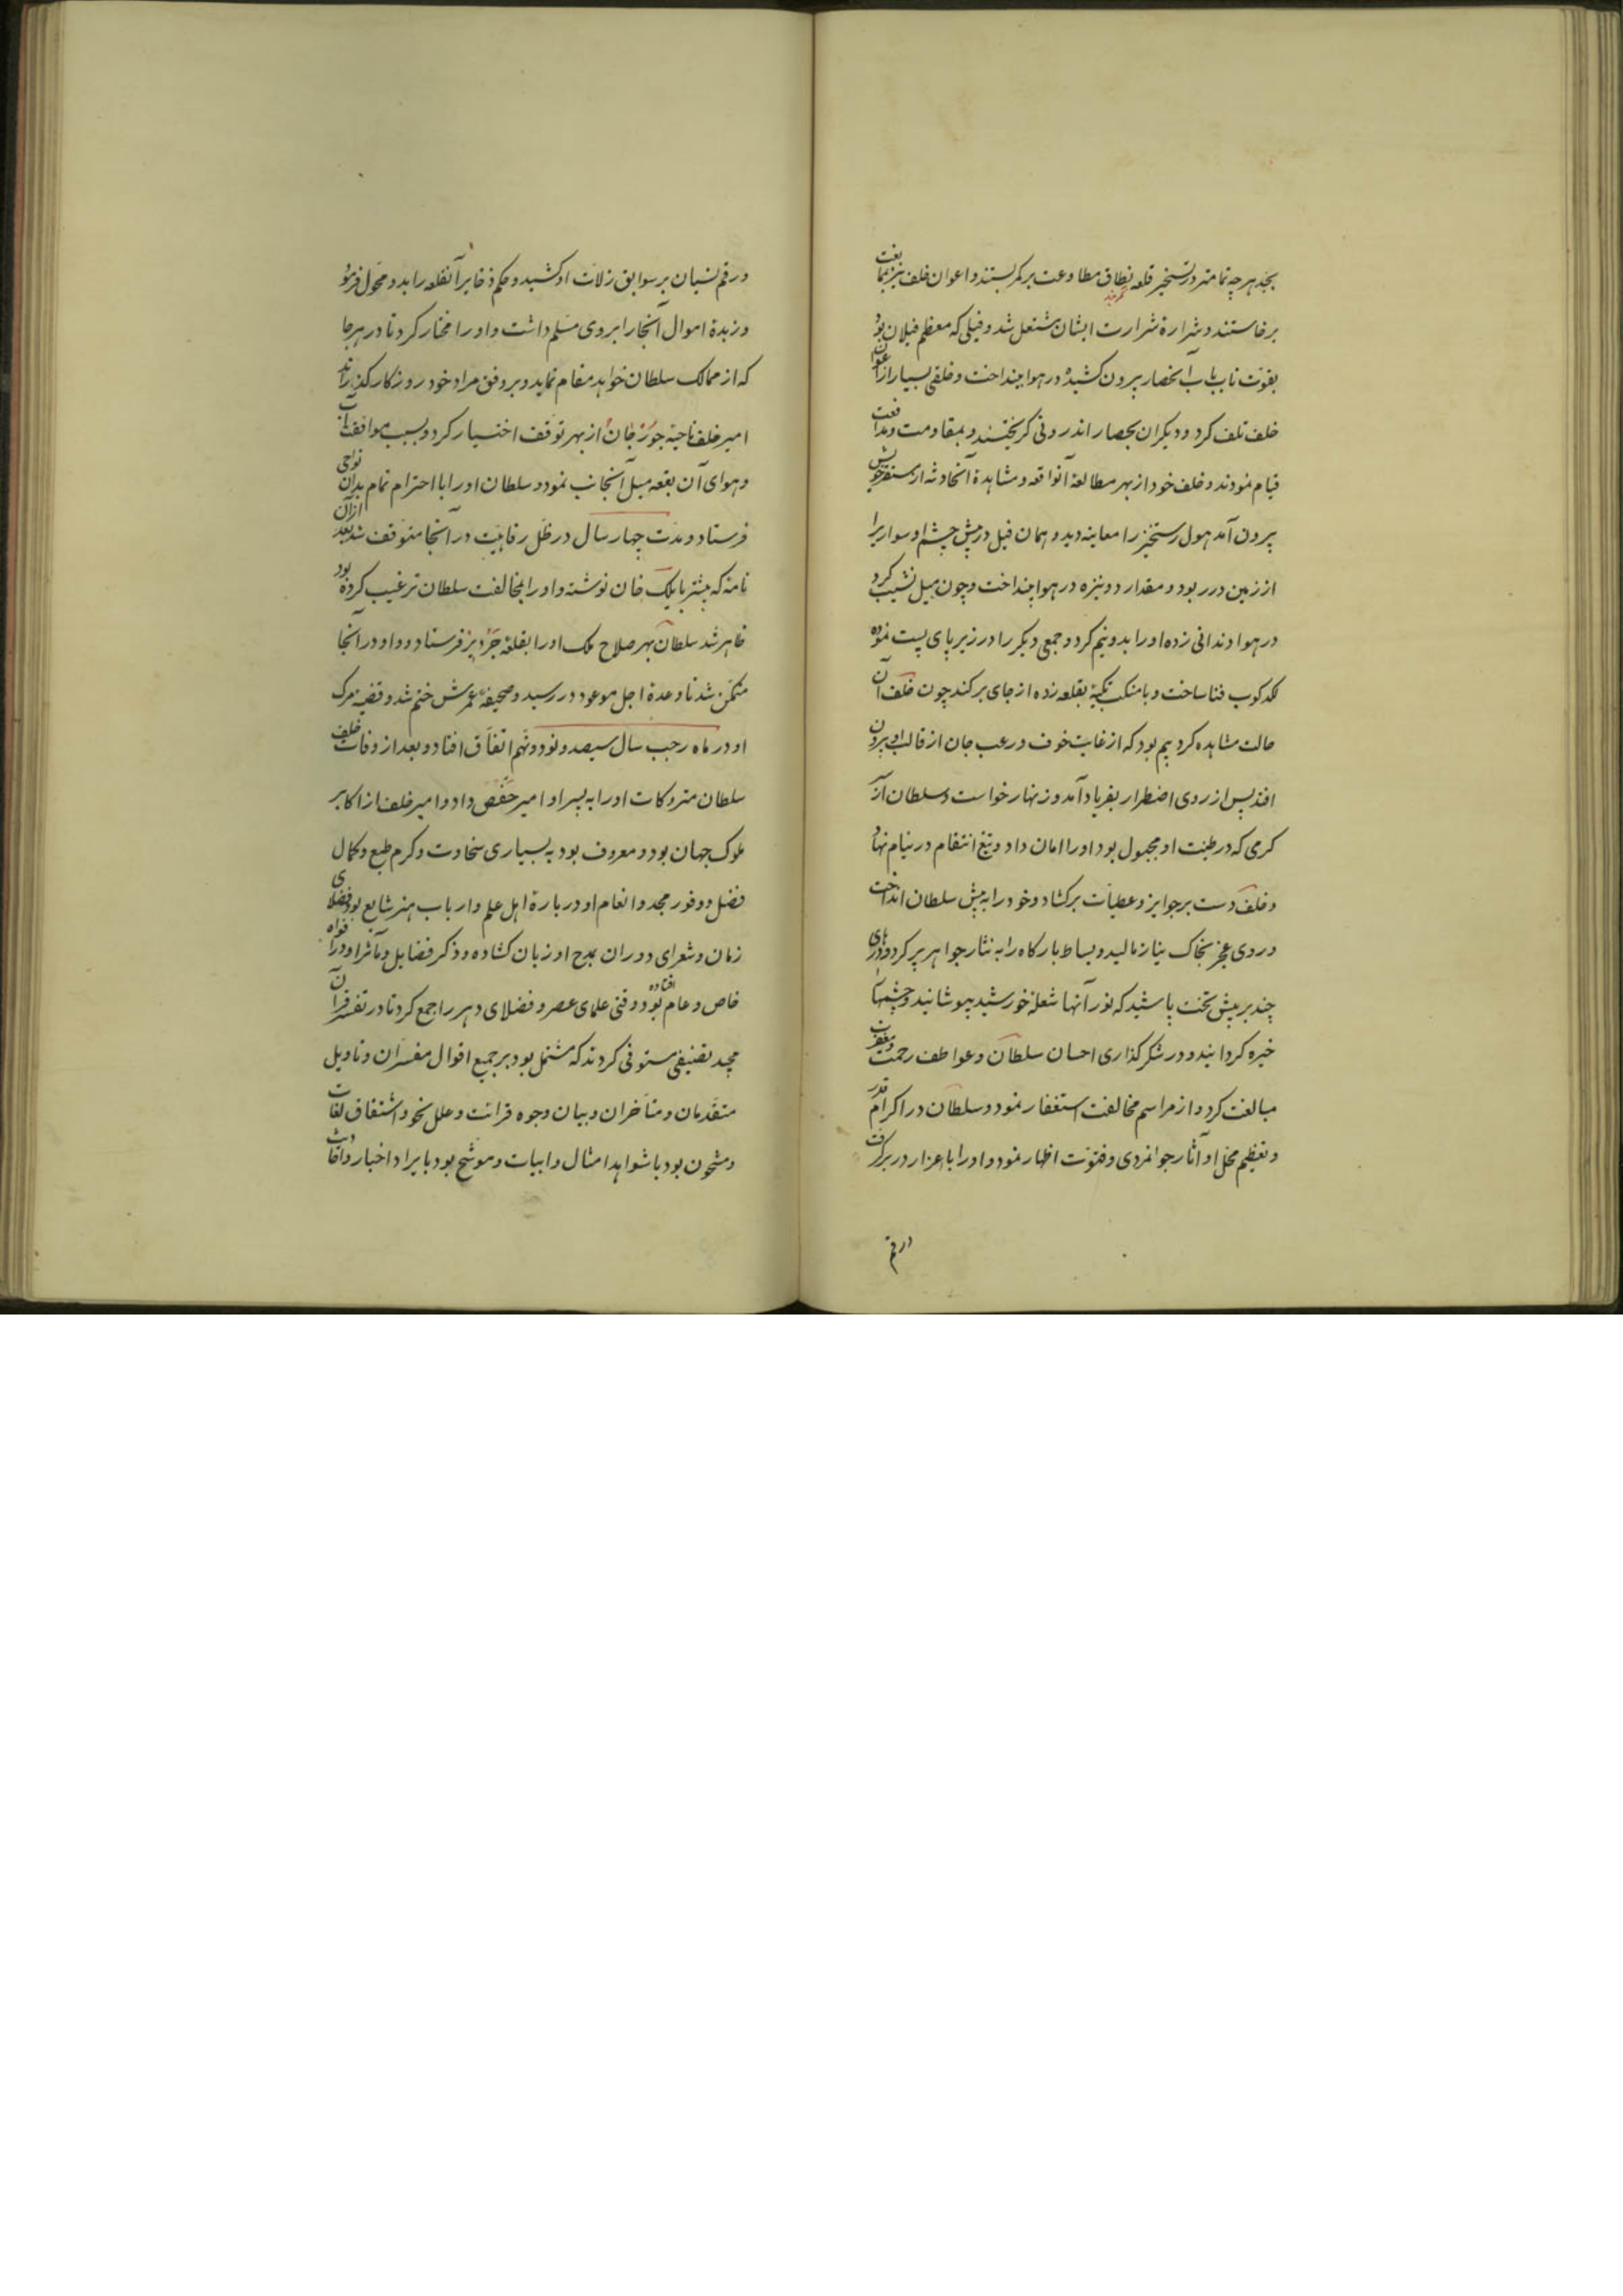 بجد هر چه تمامتر در تسخیر قلعه نطاق مطاوعت بر کمر بستند و اعوان خلف نیز بممانعت
برخاستند و شرارهٔ شرارت ایشان مشتعل شد و فیلی که معظم فیلان بود
بقوت ناب باب آنحصار بیرون کشیده در هوا بینداخت و خلقی بسیار از اعوان
خلف تلف کرد و دیگران بحصار اندرونی گریختند و بمقاومت و مدافعت
قیام نمودند و خلف خود از بهر مطالعهٔ آنواقعه و مشاهدهٔ آنحادثه از مستقر خویش
بیرون آمد هول رستخیز را معاینه دید و همان فیل در پیش چشم او سواریرا
از زمین در ربود و مقدار دو نیزه در هوا بینداخت و چون میل نشیب کرد
در هوا دندانی زده او را بدونیم کرد و جمعی دیگر را در زیر پای پست نموده
لکدکوب فنا ساخت و بامنکب تکیهٔ بقلعه زده از جای برکند چون خلف آن
حالت مشاهده کرد بیم بود که از غایت خوف و رعب جان از قالب او بیرون
افتد پس از روی اضطرار بفریاد آمد و زنهار خواست و سلطان از
کرمی که در طینت او مجبول بود او را امان داد و تیغ انتقام در نیام نهاد
و خلف دست بر جوایز و عطیات برکشاد و خود را به پیش سلطان انداخت
و روی عجز بخاک نیاز مالید و بساط بارکاه را به نثار جواهر پر کرد و درهای
چند بر پیش تخت پاشید که نور آنها شعلهٔ خورشید بپوشانید و چشمها
خیره کردانید و در شکر کذاری احسان سلطان و عواطف رحمت و مغفرت
مبالغت کرد و از مراسم مخالفت استغفار نمود و سلطان در اکرام قدر
و تعظیم محل او آثار جوانمردی و فتوت اظهار نمود و او را باعزاز در بر گرفت
و رقم
و رقم نسیان بر سوابق زلات او کشید و حکم ذخایر آنقلعه را بدو محول فرمود
و زبدهٔ اموال آنجا را بر وی مسلم داشت و او را مختار کرد تا در هر جا
که از ممالک سلطان خواهد مقام نماید و بر وفق مراد خود روزکار کذراند
امیر خلف ناحیهٔ جوزجان از بهر توقف اختیار کرد و بسبب موافقت آب
و هوای آن بقعه میل آنجانب نمود و سلطان او را با احترام تمام بدان نواحی
فرستاد و مدت چهار سال در ظل رفاهیت در آنجا متوقف شد بعد از آن
نامهٔ که پیشتر بایلک خان نوشته و او را بمخالفت سلطان ترغیب کرده بود
ظاهر شد سلطان بهر صلاح ملک او را بقلعهٔ جردیز فرستاد و او در آنجا
متمکن شد تا وعدهٔ اجل موعود در رسید و صحیفهٔ عمرش ختم شد و قضیهٔ مرک
او در ماه رجب سال سیصد و نود و نهم اتفاق افتاد و بعد از وفات خلف
سلطان متروکات او را به پسر او امیر حفص داد و امیر خلف از اکابر
ملوک جهان بود و معروف بود به بسیاری سخاوت و کرم طبع و کمال
فضل و وفور مجد و انعام او در بارهٔ اهل علم و ارباب هنر شایع بود فضلای
زمان و شعرای دوران بمدح او زبان کشاده و ذکر فضایل و مآثر او در افواه
خاص و عام افتاده بود و وقتی علمای عصر و فضلای دهر را جمع کرد تا در تفسیر قرآن
مجید تصنیفی مستوفی کردند که مشتمل بود بر جمیع اقوال مفسران و تاویل
متقدمان و متأخران و بیان وجوه قرائت و علل نحو و اشتقاق لغات
و مشحون بود با شواهد امثال و ابیات و موشح بود بایراد اخبار و